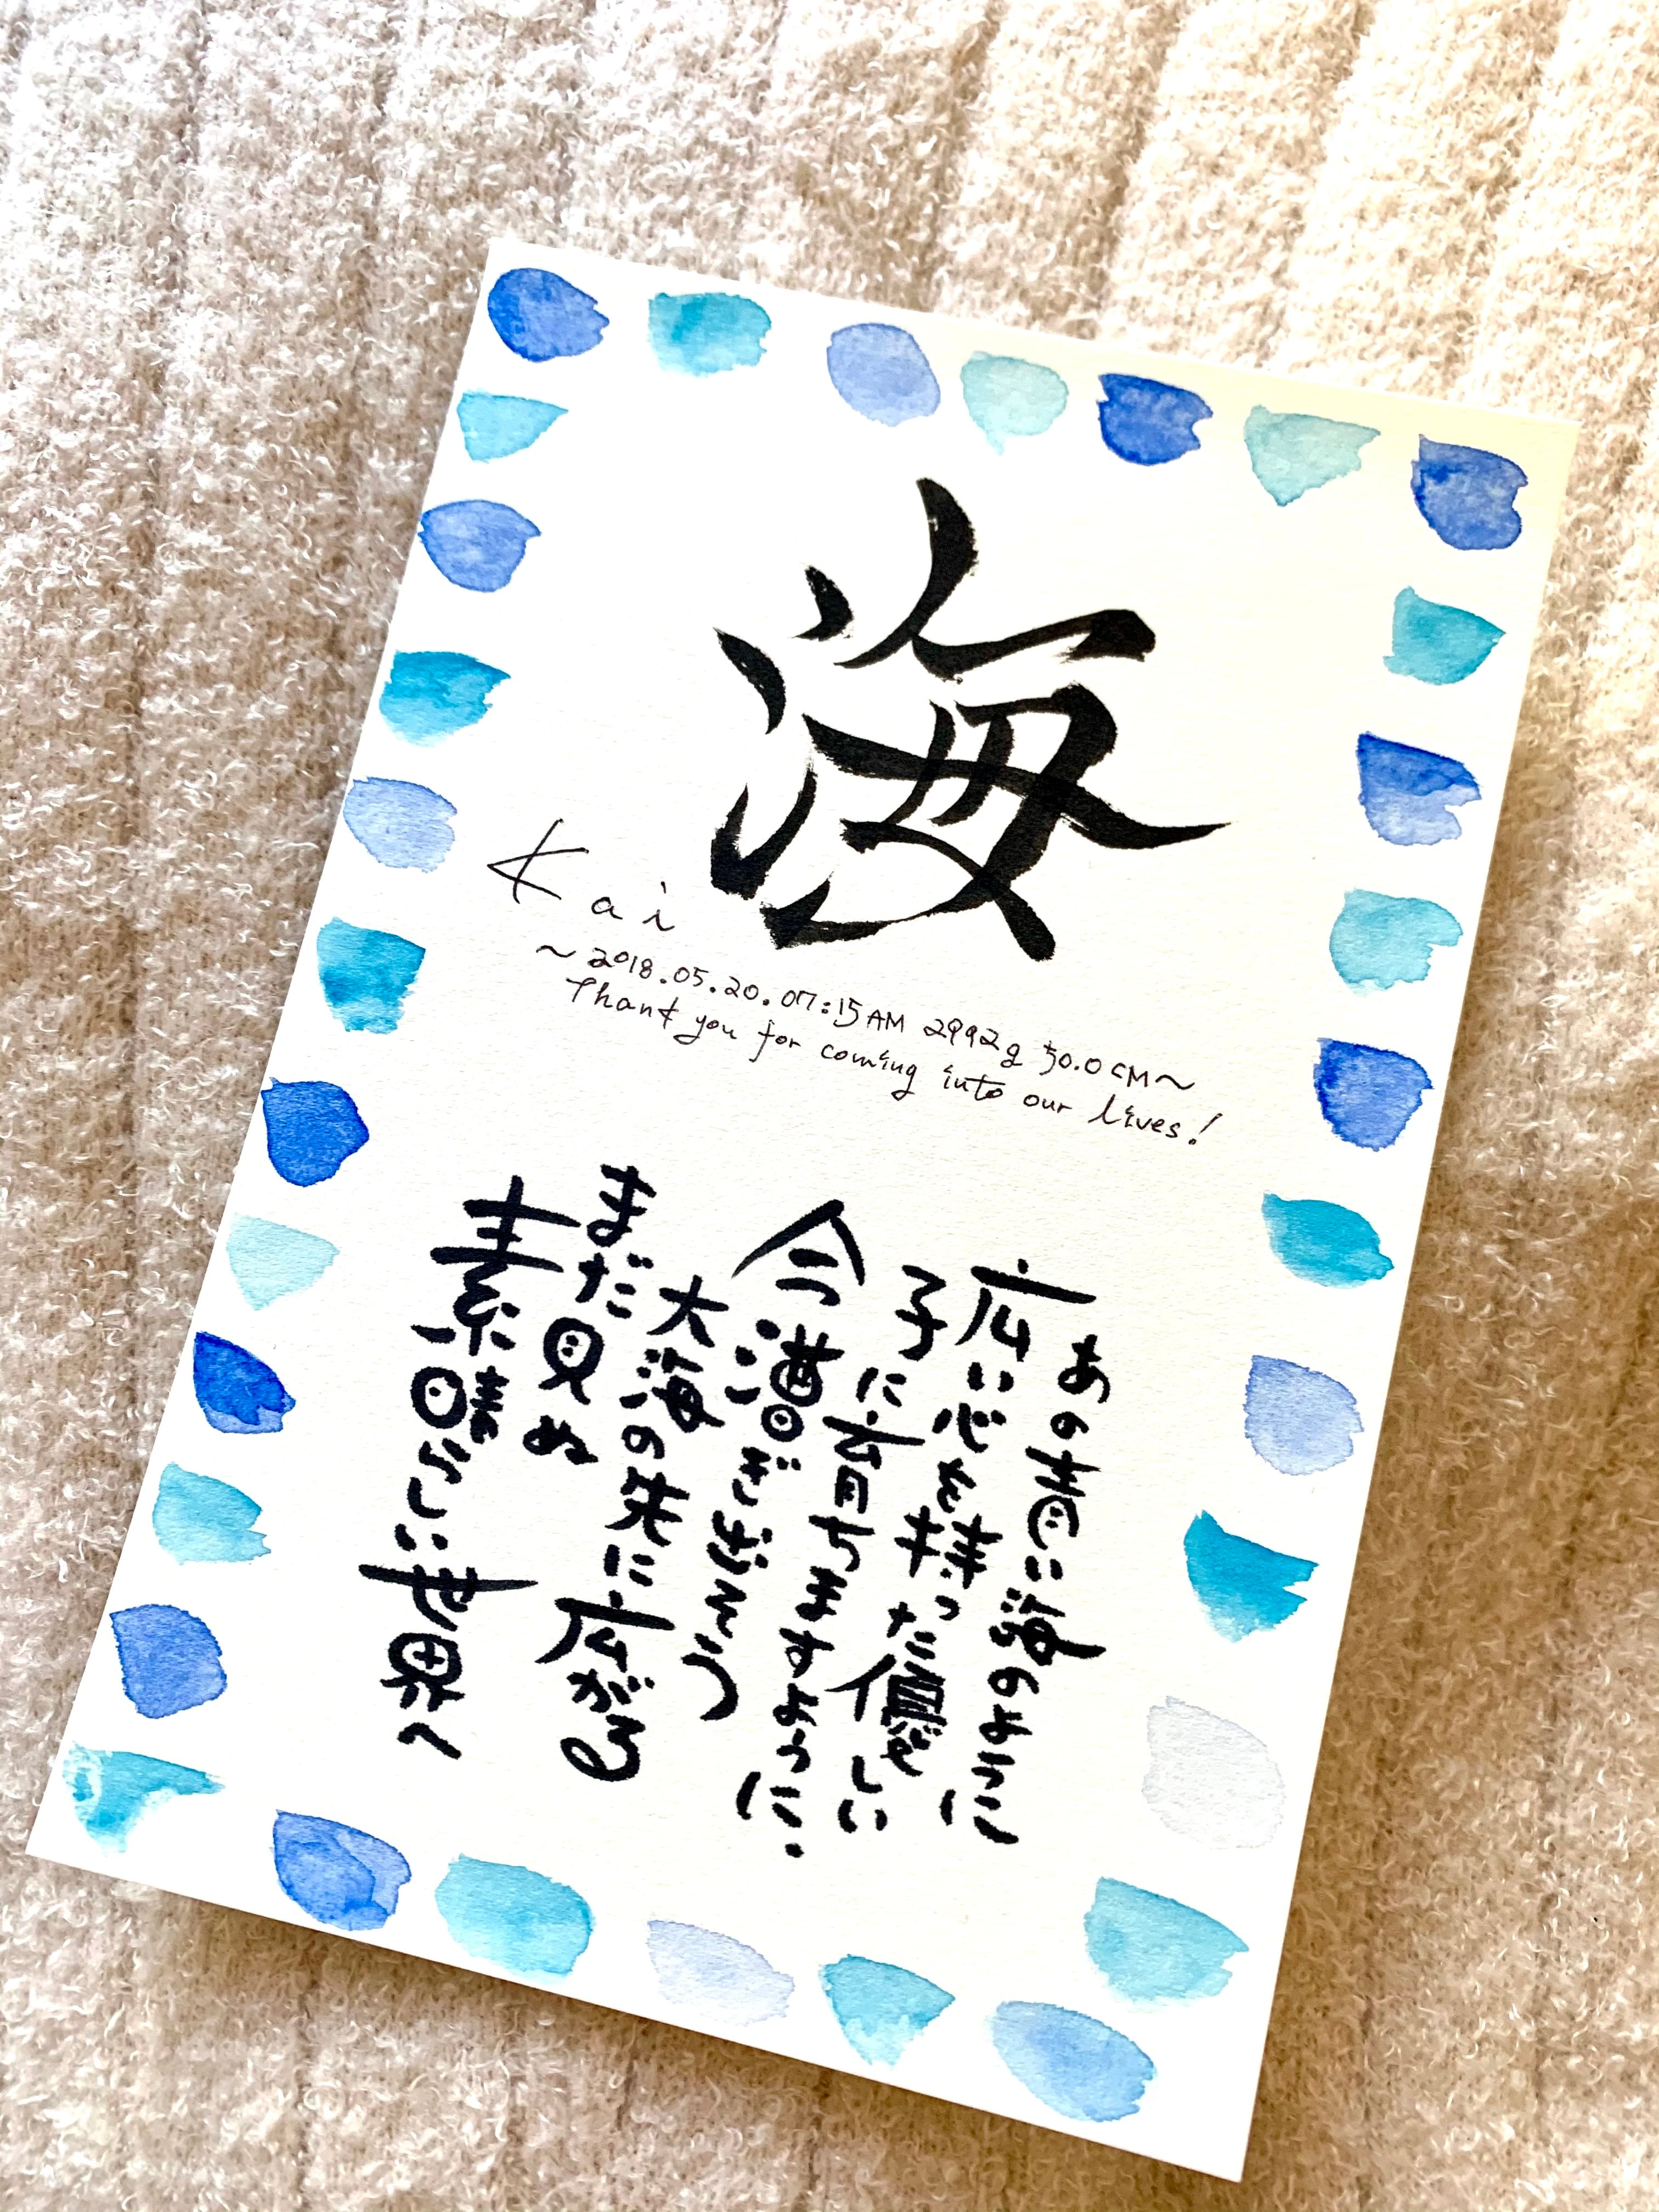 海
Kai
～2018.05.20.07:15AM 2992g 50.0CM～
Thank you for coming into our lives!
あの青い海のように
広い心を持った優しい
子に育ちますように.
今漕ぎだそう
大海の先に広がる
まだ見ぬ
素晴らしい世界へ